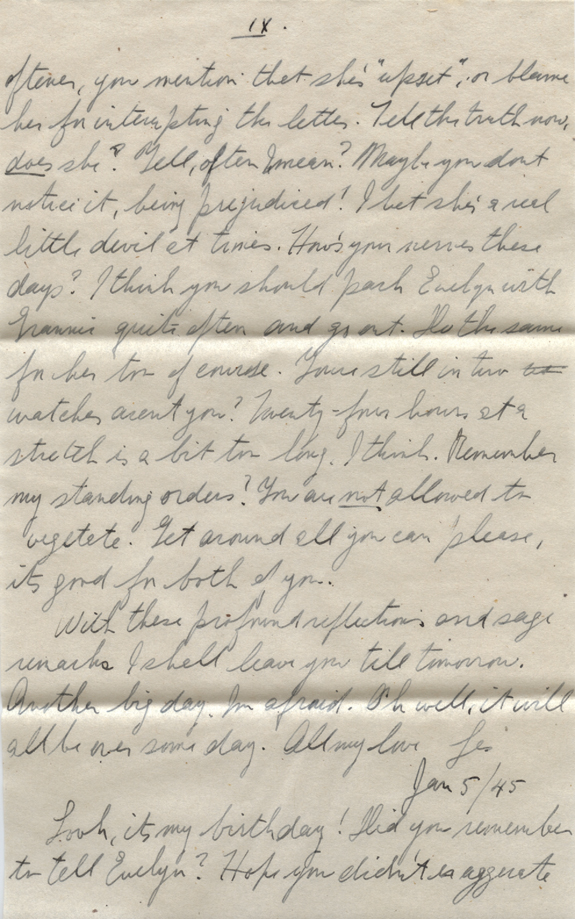 IX.
oftener, you mention that she's "upset", or blame
her for interupting the letter. Tell the truth now,
does she? Yell, often I mean? Maybe you dont
notice it, being prejudiced! I bet she's a real
little devil at times. How's your nerves these
days? I think you should park Evelyn with
Grannie quite often and go out. Do the same
for her too of course. You're still in two
watches arent you? Twenty-four hours at a
stretch is a bit too long, I think. Remember
my standing orders? You are not allowed to
vegetate. Get around all you can please,
its good for both of you.
With these profound reflections and sage
remarks I shall leave you till tomorrow.
Another big day, Im afraid. Oh well, it will
all be over some day. All my love Les
Jan 5/45
Look, its my birthday! Did you remember
to tell Evelyn? Hope you didn't exaggerate